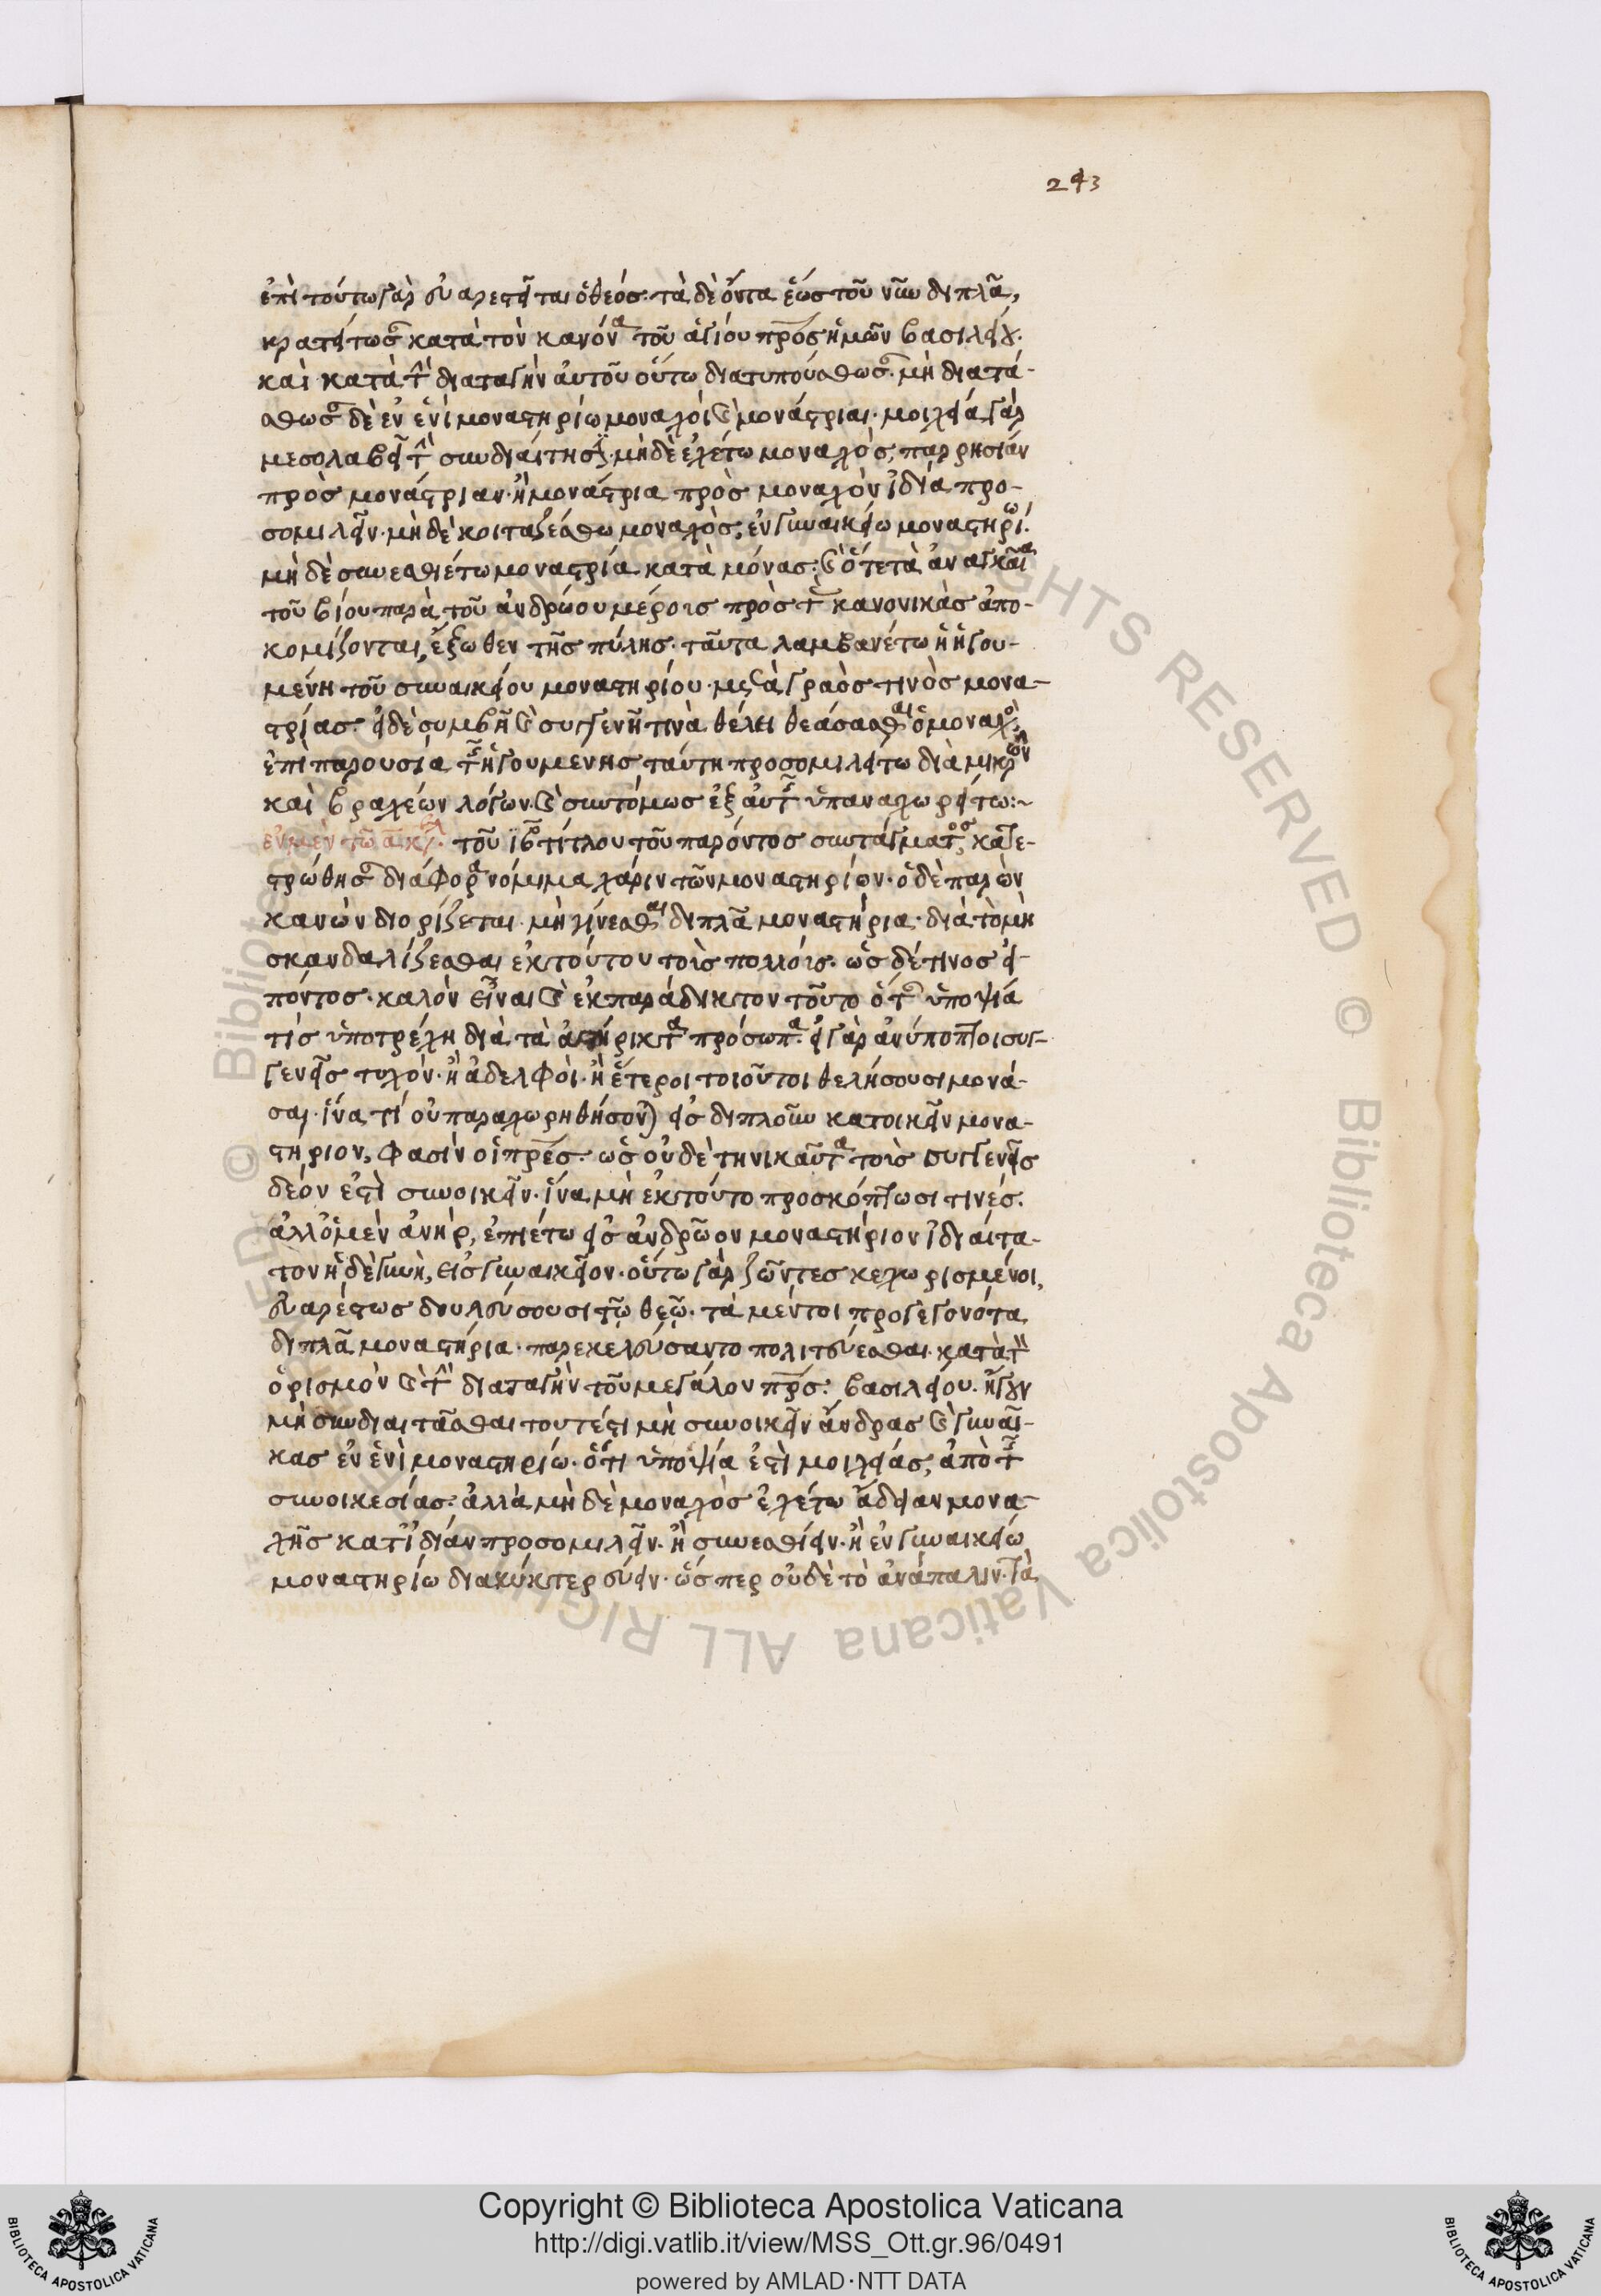 243
ἐπὶ τούτω γὰρ εὐαρεστεῖται ὁ θεός· τὰ δὲ ὄντα ἕως τοῦ νῦν διπλᾶ,
κρατείτωσαν κατὰ τὸν κανόνα τοῦ ἁγίου πρς ἡμῶν βασιλείου·
καὶ κατὰ τὴν διαταγὴν αὐτοῦ οὕτω διατυπούσθωσαν· μὴ διαιτά-
σθωσαν δὲ ἐν ἑνὶ μοναστηρίω μοναχοὶ καὶ μονάστριαι· μοιχεία γὰρ
μεσολαβεῖ τὴν συνδιαίτησιν· μὴ δὲ ἐχέτω μοναχὸς, παρρησίαν
πρὸς μονάστριαν· ἢ μονάστρια πρὸς μοναχὸν ἰδία προ-
σομιλεῖν· μὴ δὲ κοιταζέσθω μοναχὸς, ἐν γυναικείω μοναστηρίω·
μὴ δὲ συνεσθιέτω μοναστρία κατὰ μόνας· καὶ ὅτε τὰ ἀναγκαῖα
τοῦ βίου παρὰ τοῦ ἀνδρώου μέρους πρὸς τὰς κανονικὰς ἀπο-
κομίζονται, ἔξωθεν τῆς πύλης· ταῦτα λαμβανέτω ἡ ἡγου-
μένη τοῦ γυναικείου μοναστηρίου· μετὰ γραὸς τινὸς μονα-
στρίας· εἰ δὲ συμβῆ καὶ συγγενῆ τινὰ θέλει θεάσασθαι ὁ μοναχὸς,
ἐπὶ παρουσία τῆς ἡγουμένης ταύτη προσομιλείτω διὰ μικρῶν
καὶ βραχέων λόγων· καὶ συντόμως ἐξ αὐτῆς ὑπαναχωρείτω:~
ἐν μὲν τῶ α κεφ. τοῦ ιβ τίτλου τοῦ παρόντος συντάγματος, κατε-
στρώθησαν διάφορα νόμιμα χάριν τῶν μοναστηρίων· ὁ δὲ παρὼν
κανὼν διορίζεται μὴ γίνεσθαι διπλᾶ μοναστήρια· διὰ τὸ μὴ
σκανδαλίζεσθαι ἐκ τούτου τοὺς πολλούς. ὡς δέ τινος εἰ-
πόντος· καλὸν εἶναι καὶ ἐκπαράδεκτον τοῦτο ὅταν ὑποψία
τίς ὑποτρέχη διὰ τὰ ἀστήρικτα πρόσωπα· εἰ γὰρ ἀνύποπτοι συγ-
γενεῖς τυχὸν· ἢ ἀδελφοὶ· ἢ ἕτεροι τοιοῦτοι θελήσουσι μονά-
σαι· ἵνα τί οὐ παραχωρηθήσονται εἰς διπλοῦν κατοικεῖν μονα-
στήριον, φασὶν οἱ πρες· ὡς οὐδὲ τηνικαῦτα τοὺς συγγενεῖς
δέον ἐστὶ συνοικεῖν· ἵνα μὴ ἐκ τούτο προσκόπτωσι τινές.
ἀλλ' ὁ μὲν ἀνὴρ, ἐπιέτω εἰς ἀνδρῶον μοναστήριον ἰδιαίτα-
τον ἡ δὲ γυνὴ, εἰς γυναικεῖον· οὕτω γὰρ ζῶντες κεχωρισμένοι,
εὐαρέστως δουλεύσουσι τῶ θεῶ· τὰ μέντοι προγεγονότα
διπλᾶ μοναστήρια· παρεκελεύσαντο πολιτεύεσθαι κατὰ τὸν
ὁρισμὸν καὶ τὴν διαταγὴν τοῦ μεγάλου πρς· βασιλείου· ἤγουν
μὴ συνδιαιτᾶσθαι τουτέστι μὴ συνοικεῖν ἄνδρας καὶ γυναῖ-
κας ἐν ἑνὶ μοναστηρίω· ὅτι ὑποψία ἐστὶ μοιχείας, ἀπὸ τῆς
συνοικεσίας· ἀλλὰ μὴ δὲ μοναχὸς ἐχέτω ἄδειαν μονα-
χῆς κατ' ἰδίαν προσομιλεῖν· ἢ συνεσθίειν· ἢ ἐν γυναικείω
μοναστηρίω διανύκτερεύειν· ὥσπερ οὐδὲ τὸ ἀνάπαλιν· τὰ
Copyright © Biblioteca Apostolica Vaticana
http://digi.vatlib.it/view/MSS_Ott.gr.96/0491
powered by AMLAD·NTT DATA